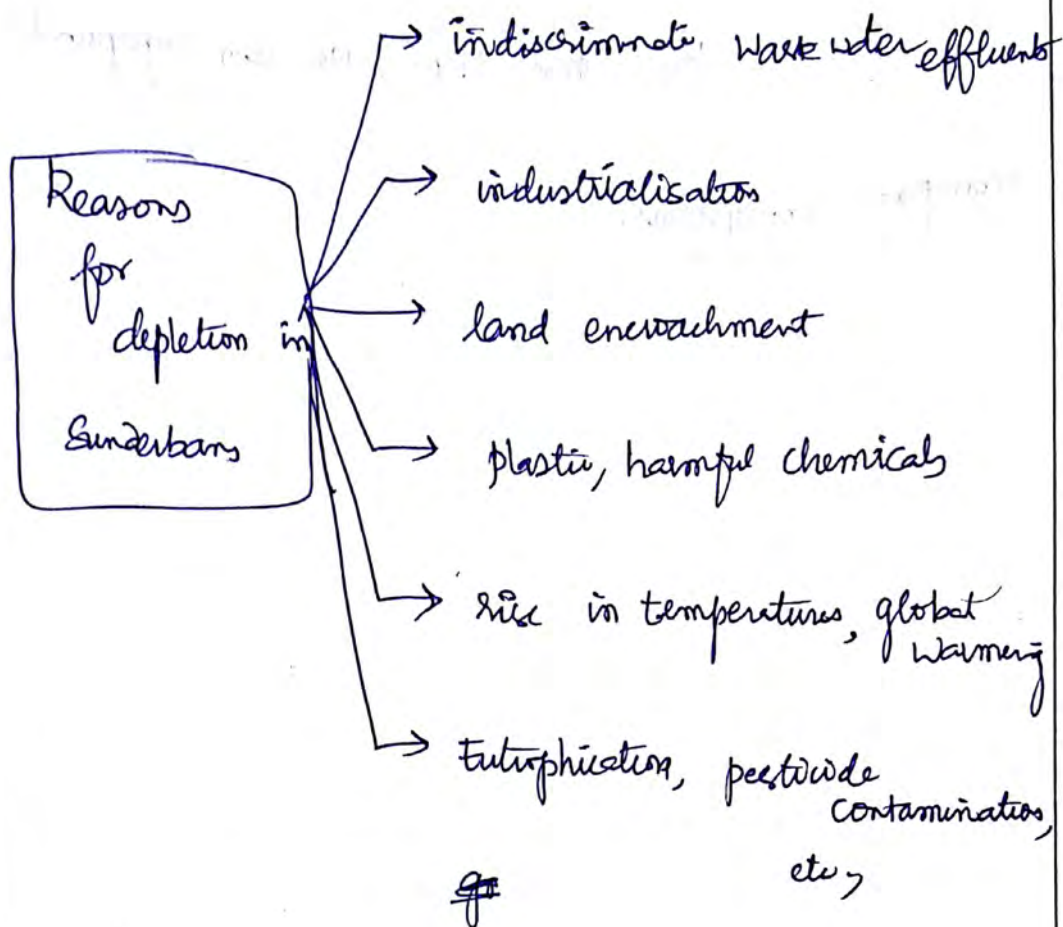 Reasons
for
depletion in
Sunderbans
indiscriminate waste water effluents
industrialisation
land encroachment
plastic, harmful chemicals
rise in temperatures, global
warming
Eutrophication, pesticide
contamination,
etc,